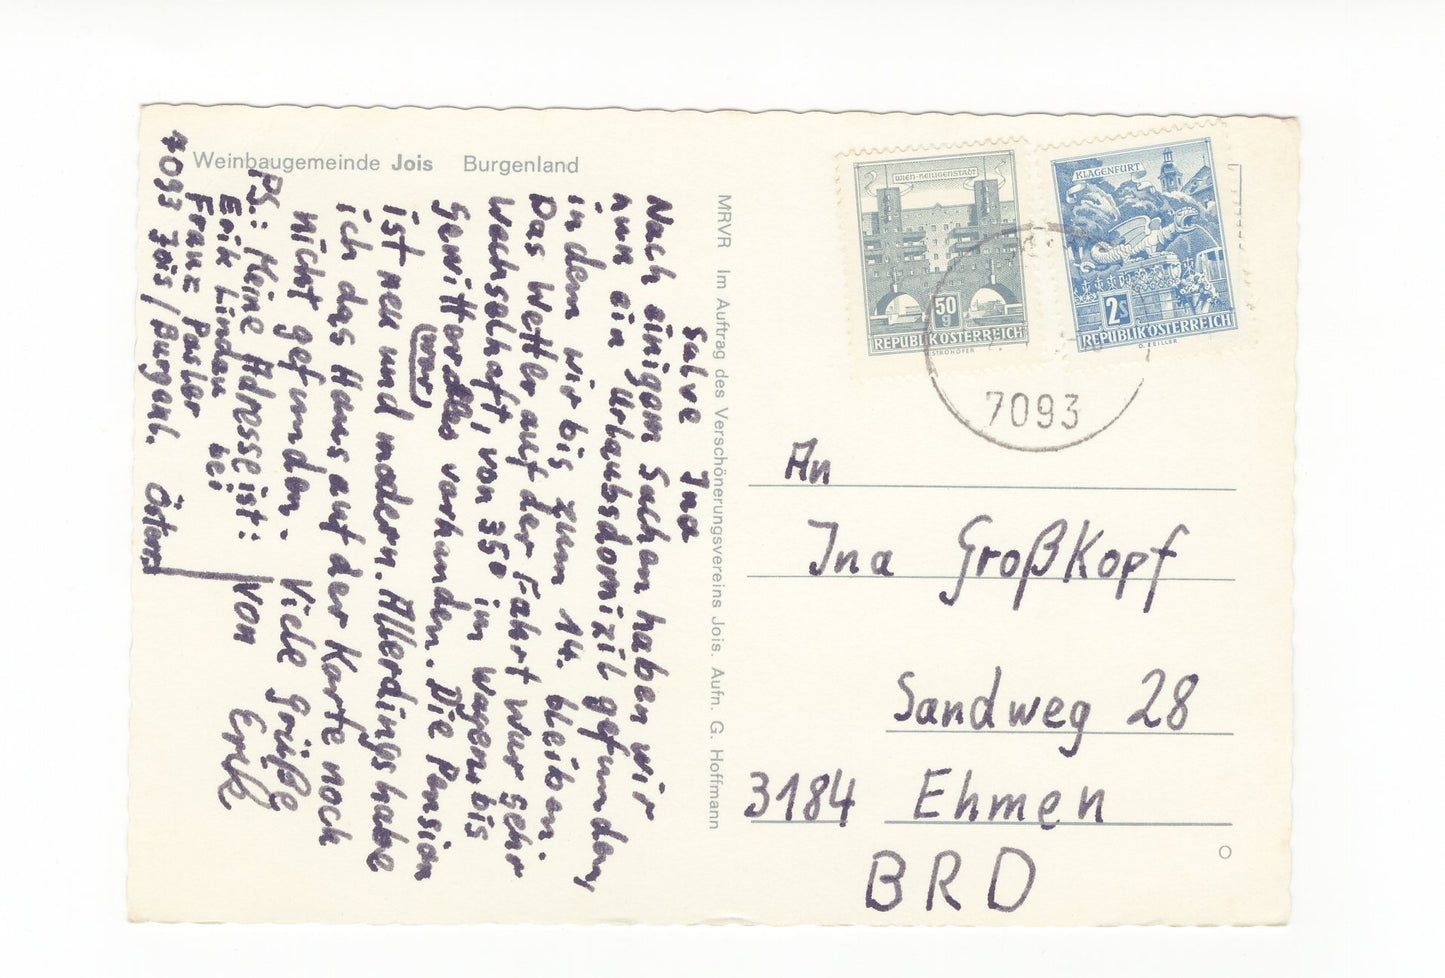 Weinbaugemeinde Jois Burgenland
Salve Ina
Nach einigem Suchen haben wir
nun ein Urlaubsdomizil gefunden,
in dem wir bis zum 14. bleiben.
Das Wetter auf der Fahrt war sehr
wechselhaft, von 35° im Wagen bis
Gewitter war vorhanden. Die Pension
ist neu und modern. Allerdings habe
ich das Haus auf der Karte noch
nicht gefunden. Viele Grüße
von Erik
PS.: Meine Adresse ist:
Erik Lindau bei
Franz Pasler
7093 Jois/Burgenl. Österr.
MRVR Im Auftrag des Verschönerungsvereins Jois. Aufn. G. Hoffmann
WIEN-HEILIGENSTADT
50 g
REPUBLIK ÖSTERREICH
KLAGENFURT
2 S
REPUBLIK ÖSTERREICH
7093
An
Ina Großkopf
Sandweg 28
3184 Ehmen
BRD